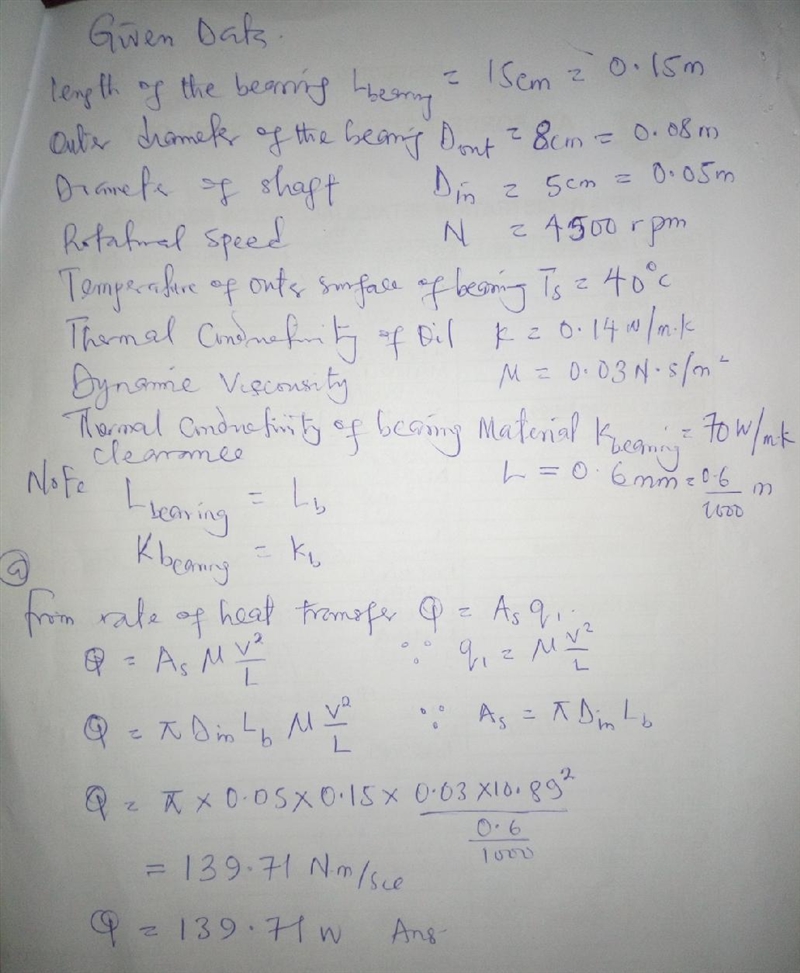 Given Data.
length of the bearing Lbearing = 15cm = 0.15m
Outer diameter of the bearing Dout = 8cm = 0.08m
Diameter of shaft Din = 5cm = 0.05m
Rotational speed N = 4500 rpm
Temperature of outer surface of bearing Ts = 40°c
Thermal Conductivity of Oil k = 0.14 W/m.k
Dynamic Viscosity M = 0.03 N.s/m²
Thermal Conductivity of bearing Material Kbearing = 70 W/mk
clearance L = 0.6mm = 0.6/1000 m
Note Lbearing = Lb
Kbearing = kb
(a)
from rate of heat transfer Q = As q1.
Q = As M V²/L ∵ q1 = M V²/L
Q = π Din Lb M V²/L ∵ As = π Din Lb
Q = π × 0.05 × 0.15 × 0.03 × 10.89² / 0.6/1000
= 139.71 N.m/sce
Q = 139.71 W Ans